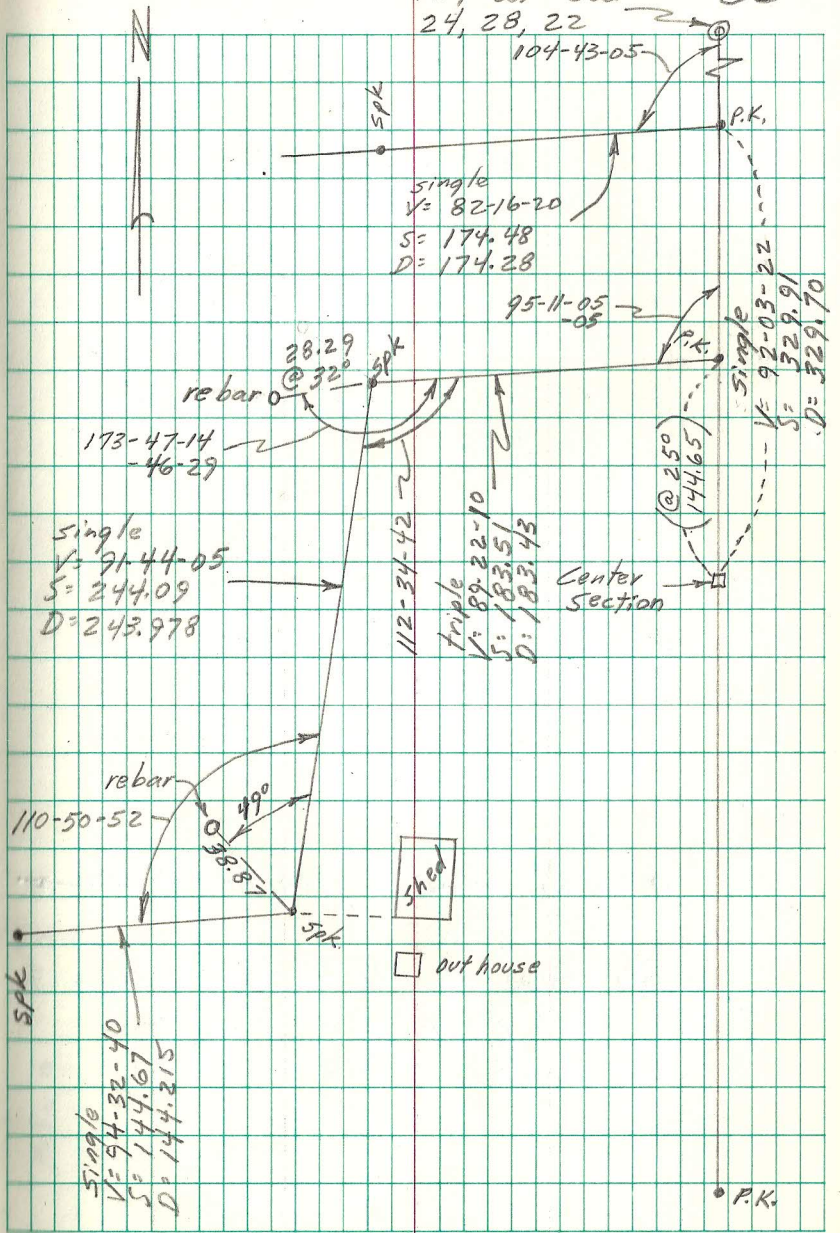 N
24, 28, 22
104-43-05
spk
P.K.
single
V= 82-16-20
S= 174.48
D= 174.28
single
V= 92-03-22
S= 329.91
D= 329.70
95-11-05
-05
P.K.
28.29
@ 32°
spk
rebar
173-47-14
-46-29
(@ 25°
144.65)
single
V= 91-44-05
S= 244.09
D= 243.978
112-34-42
triple
V= 89-22-10
S= 183.51
D= 183.43
Center
Section
rebar
49°
110-50-52
38.87
shed
spk
spk
out house
single
V= 94-32-40
S= 144.67
D= 144.215
P.K.